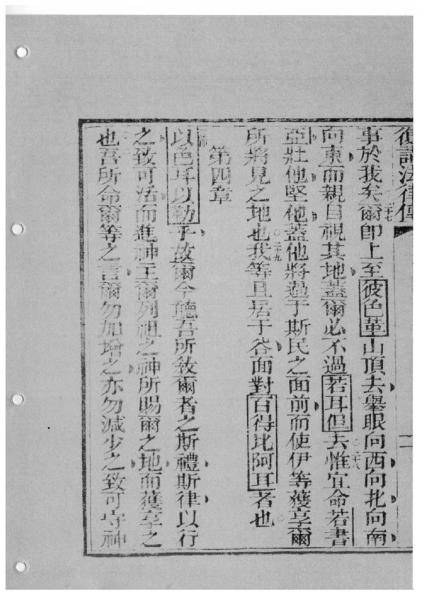 復講法律傳
事於我矣爾卽上至彼色堇山頂去舉眼向西向北向南
向東而親目視其地蓋爾必不過若耳但去惟宜命若書
亞壯他堅他蓋他將過于斯民之面前而使伊等獲享爾
所將見之地也我等且居于谷面對百得比阿耳者也
第四章
以色耳以勒乎故爾今聽吾所敎爾者之斯禮斯律以行
之致可活而進神主爾列祖之神所賜爾之地而獲享之
也吾所命爾等之言爾勿加增之亦勿減少之致可守神